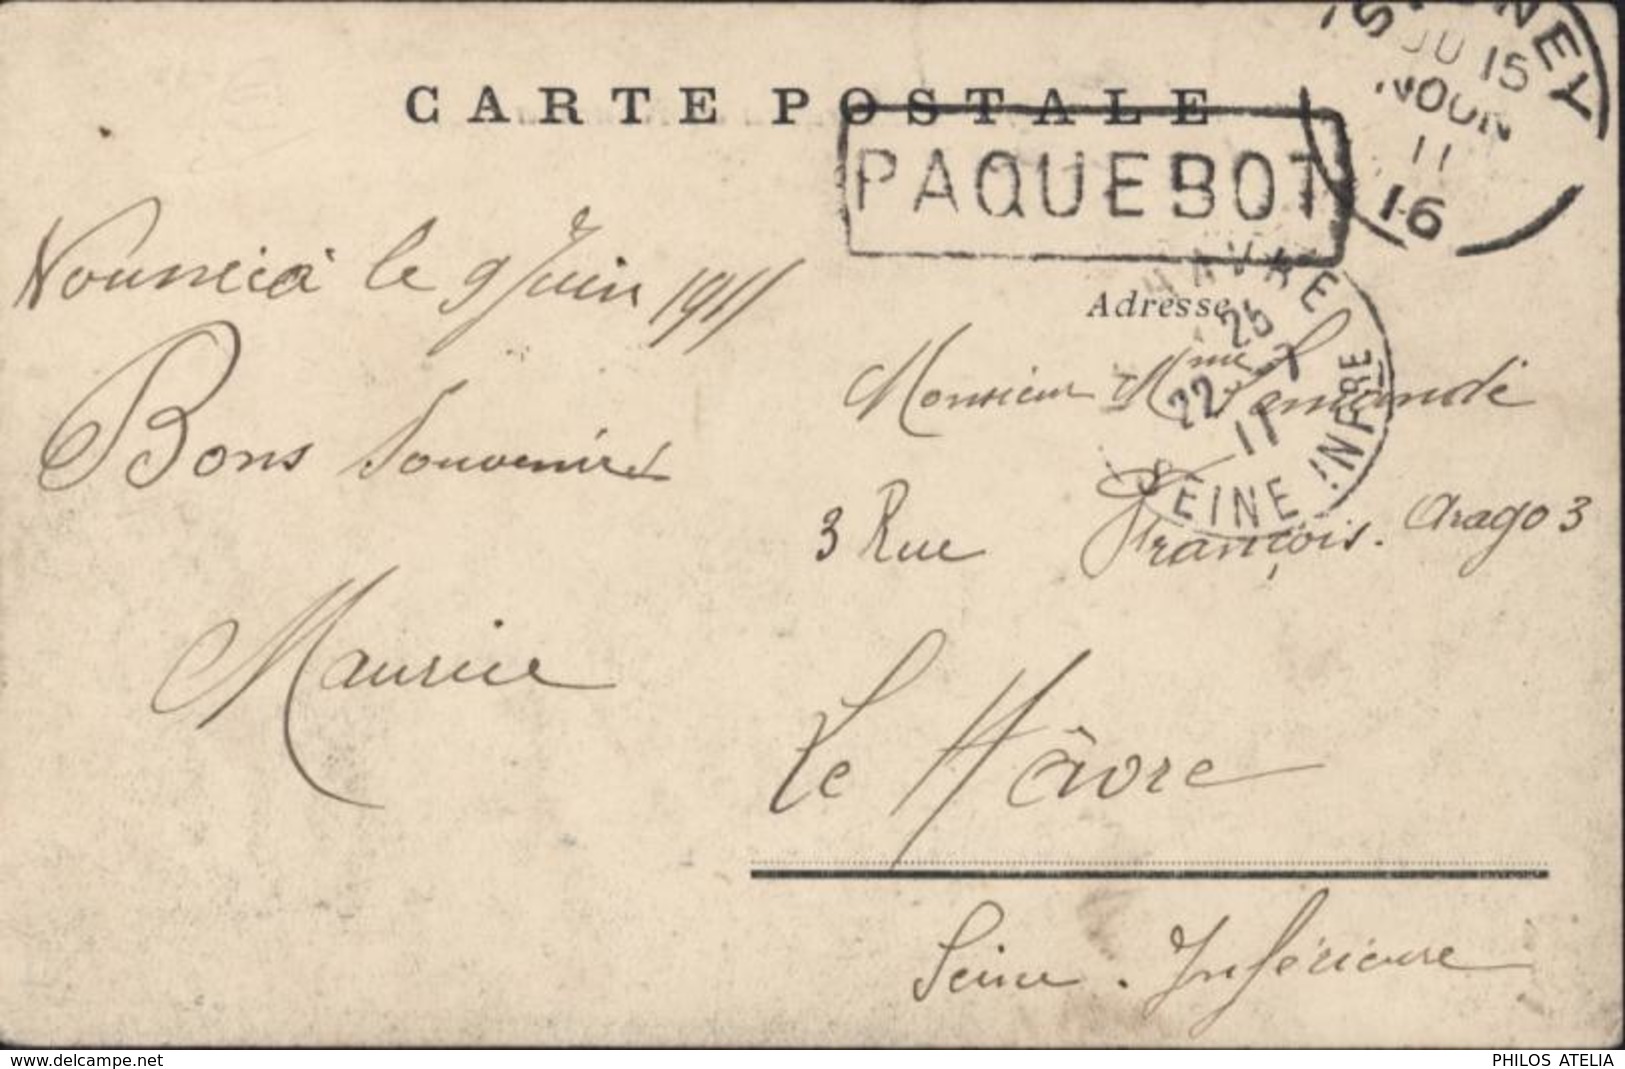 CARTE POSTALE
PAQUEBOT
SYDNEY
JU 15
NOON
11
16
Nouméa le 9 Juin 1911
Bons Souvenirs
Maurice
Adresse
HAVRE
25
22 7
11
SEINE INFRE
Monsieur Mme Lemandé
3 Rue François. Arago 3
Le Hâvre
Seine. Inférieure
delcampe.net
PHILOS ATELIA